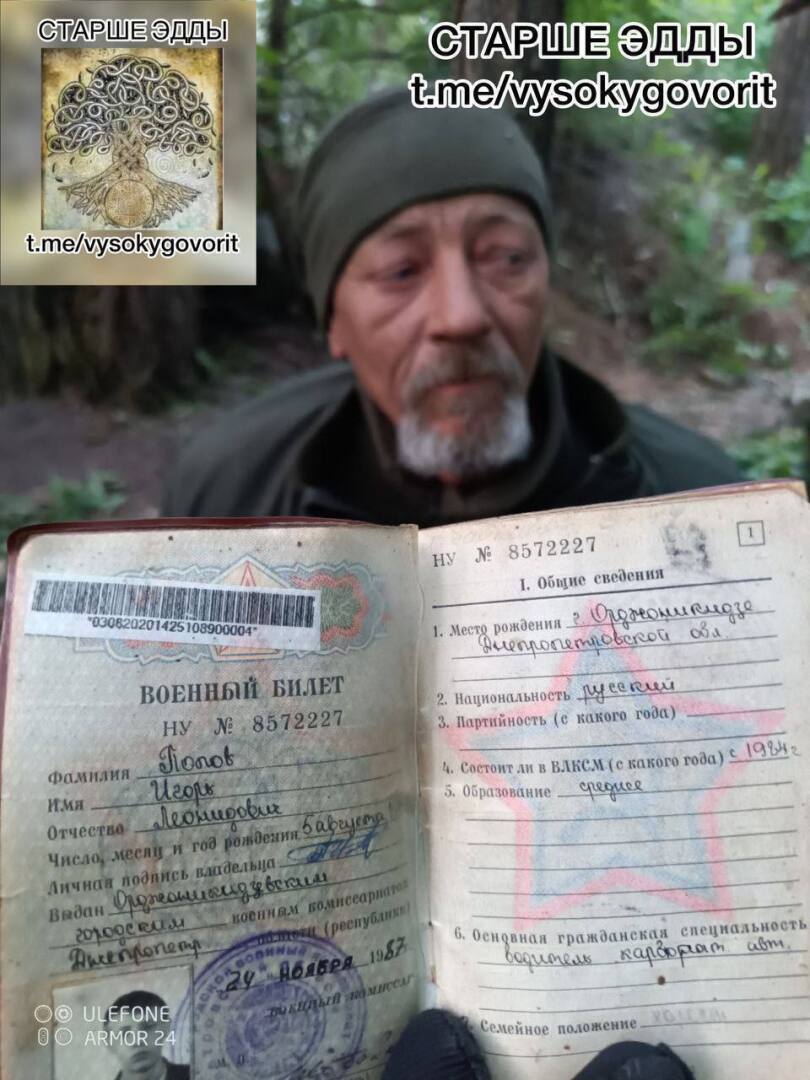 СТАРШЕ ЭДДЫ
t.me/vysokygovorit
СТАРШЕ ЭДДЫ
t.me/vysokygovorit
*030620201425108900004*
ВОЕННЫЙ БИЛЕТ
НУ № 8572227
Фамилия Попов
Имя Игорь
Отчество Леонидович
Число, месяц и год рождения 5 августа
Личная подпись владельца
Выдан Орджоникидзевским
городским военным комиссариатом
Днепропетр области (республики)
24 НОЯБРЯ 1987
военный комиссар
М. П.
НУ № 8572227
1
I. Общие сведения
1. Место рождения г. Орджоникидзе
Днепропетровской обл.
2. Национальность русский
3. Партийность (с какого года)
4. Состоит ли в ВЛКСМ (с какого года) с 1984г
5. Образование среднее
6. Основная гражданская специальность
водитель авт.
7. Семейное положение
ULEFONE
ARMOR 24